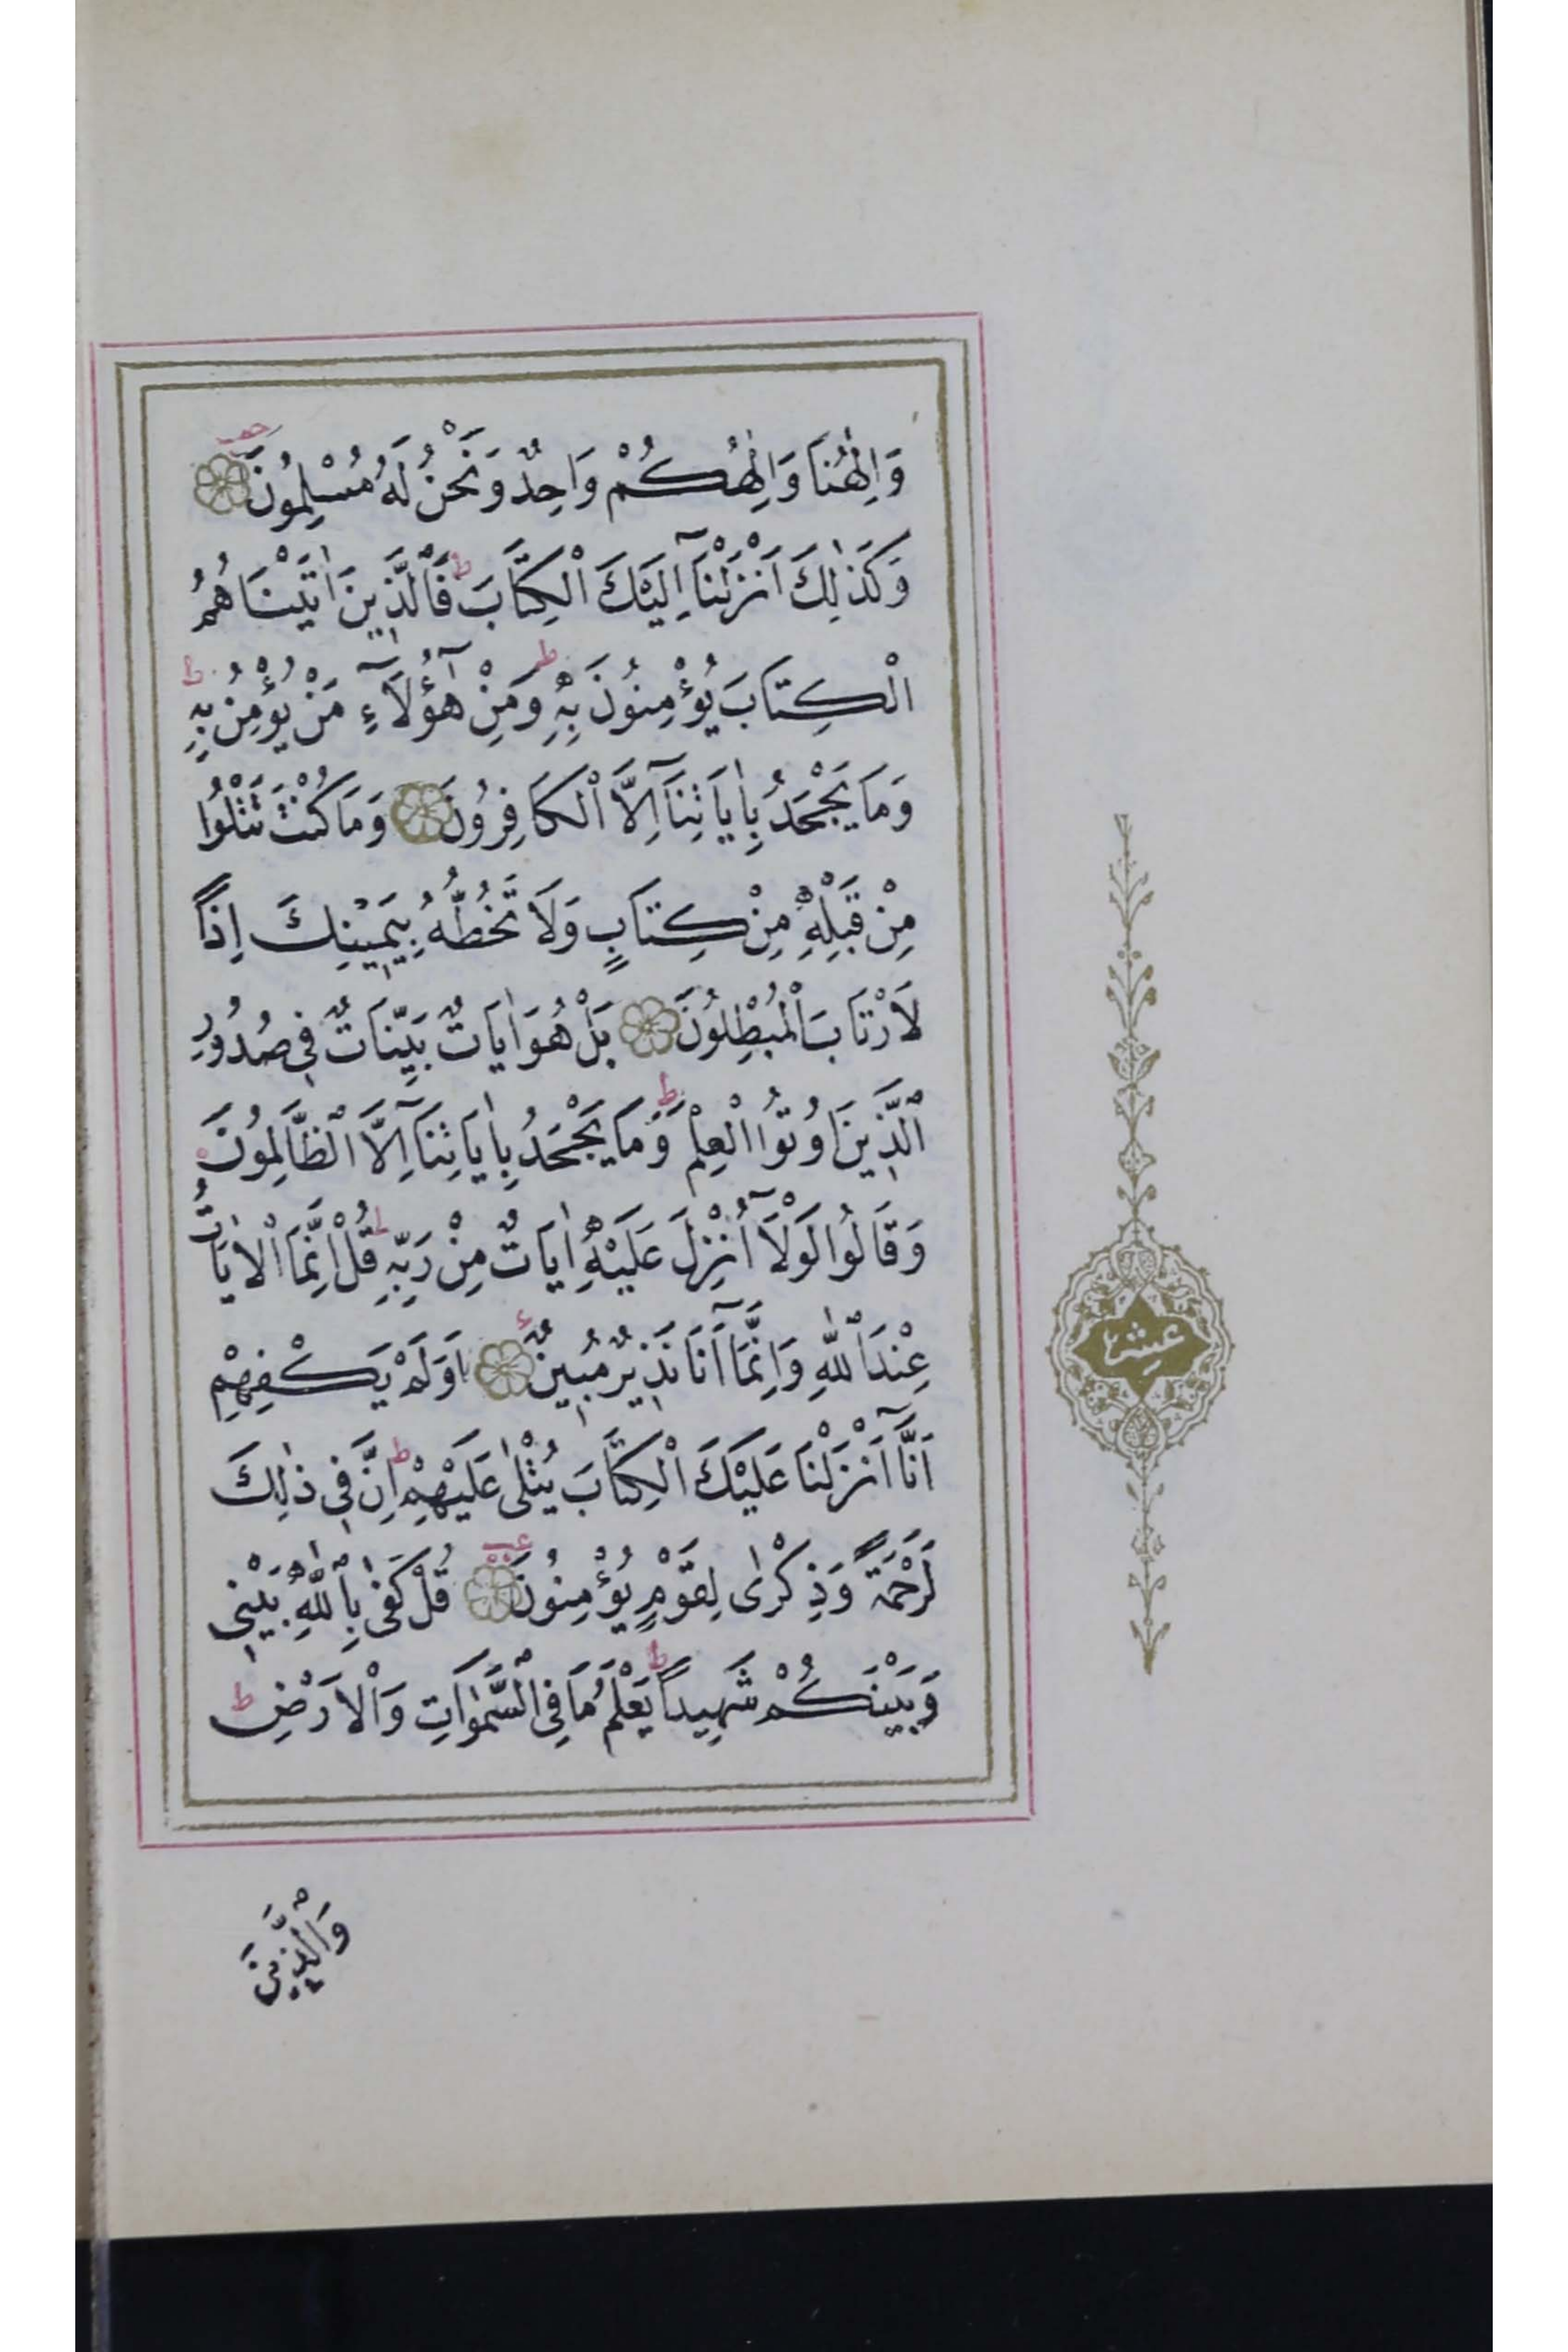 وَاِلٰهُنَا وَاِلٰهُكُمْ وَاحِدٌ وَنَحْنُ لَهُ مُسْلِمُونَ
وَكَذٰلِكَ اَنْزَلْنَآ اِلَيْكَ الْكِتَابَ ط فَالَّذِينَ اٰتَيْنَاهُمُ
الْكِتَابَ يُؤْمِنُونَ بِهِ ط وَمِنْ هٰٓؤُلَآءِ مَنْ يُؤْمِنُ بِهِ ط
وَمَا يَجْحَدُ بِاٰيَاتِنَآ اِلَّا الْكَافِرُونَ وَمَا كُنْتَ تَتْلُوا
مِنْ قَبْلِهِ مِنْ كِتَابٍ وَلَا تَخُطُّهُ بِيَمِينِكَ اِذًا
لَارْتَابَ الْمُبْطِلُونَ بَلْ هُوَ اٰيَاتٌ بَيِّنَاتٌ فِي صُدُورِ
الَّذِينَ اُوتُوا الْعِلْمَ ط وَمَا يَجْحَدُ بِاٰيَاتِنَآ اِلَّا الظَّالِمُونَ
وَقَالُوا لَوْلَآ اُنْزِلَ عَلَيْهِ اٰيَاتٌ مِنْ رَبِّهِ ط قُلْ اِنَّمَا الْاٰيَاتُ
عِنْدَ اللّٰهِ وَاِنَّمَآ اَنَا نَذِيرٌ مُبِينٌ اَوَلَمْ يَكْفِهِمْ
اَنَّآ اَنْزَلْنَا عَلَيْكَ الْكِتَابَ يُتْلٰى عَلَيْهِمْ ط اِنَّ فِي ذٰلِكَ
لَرَحْمَةً وَذِكْرٰى لِقَوْمٍ يُؤْمِنُونَ قُلْ كَفٰى بِاللّٰهِ بَيْنِي
وَبَيْنَكُمْ شَهِيدًا ط يَعْلَمُ مَا فِي السَّمٰوَاتِ وَالْاَرْضِ ط
وَالَّذِينَ
عشر